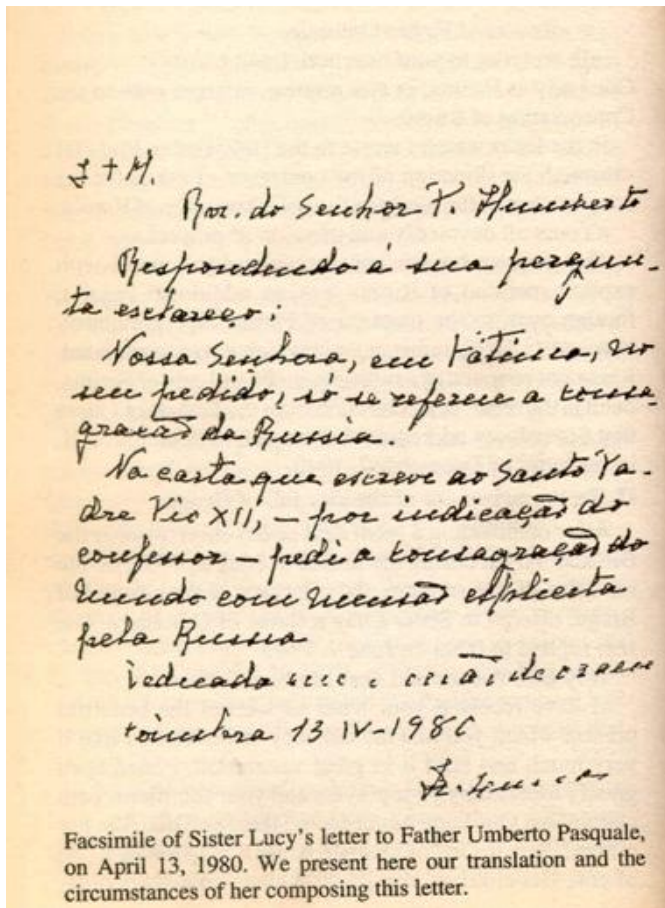 J + M.
Rev. do Senhor P. Humberto
Respondendo á sua pergun-
ta esclareço:
Nossa Senhora, em Fátima, no
seu pedido, só se referiu a consa-
gração da Russia.
Na carta que escreve ao Santo Pa-
dre Pio XII, – por indicação do
confessor – pedi a consagração do
mundo com mensão explicita
pela Russia
Dedicada em união de
Coimbra 13 IV-1980
Ir. Lucia
Facsimile of Sister Lucy's letter to Father Umberto Pasquale,
on April 13, 1980. We present here our translation and the
circumstances of her composing this letter.